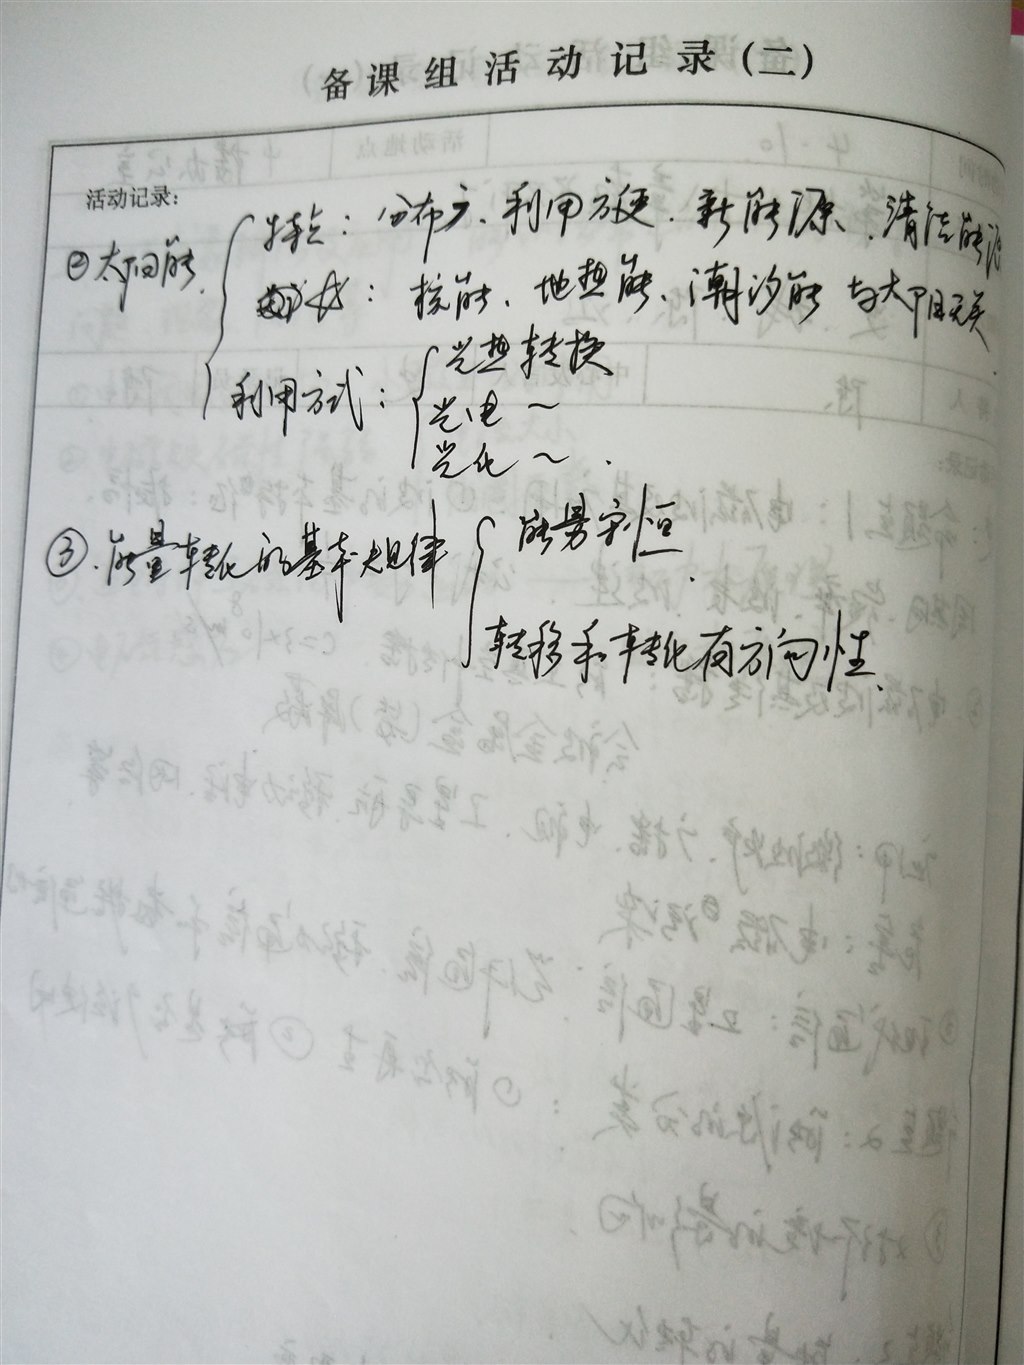 备课组活动记录(二)
活动记录:
②太阳能
特点：分布广、利用方便、新能源、清洁能源
核能、地热能、潮汐能与太阳无关
利用方式：
光热转换
光电～
光化～.
③.能量转化的基本规律
能量守恒
转移和转化有方向性.